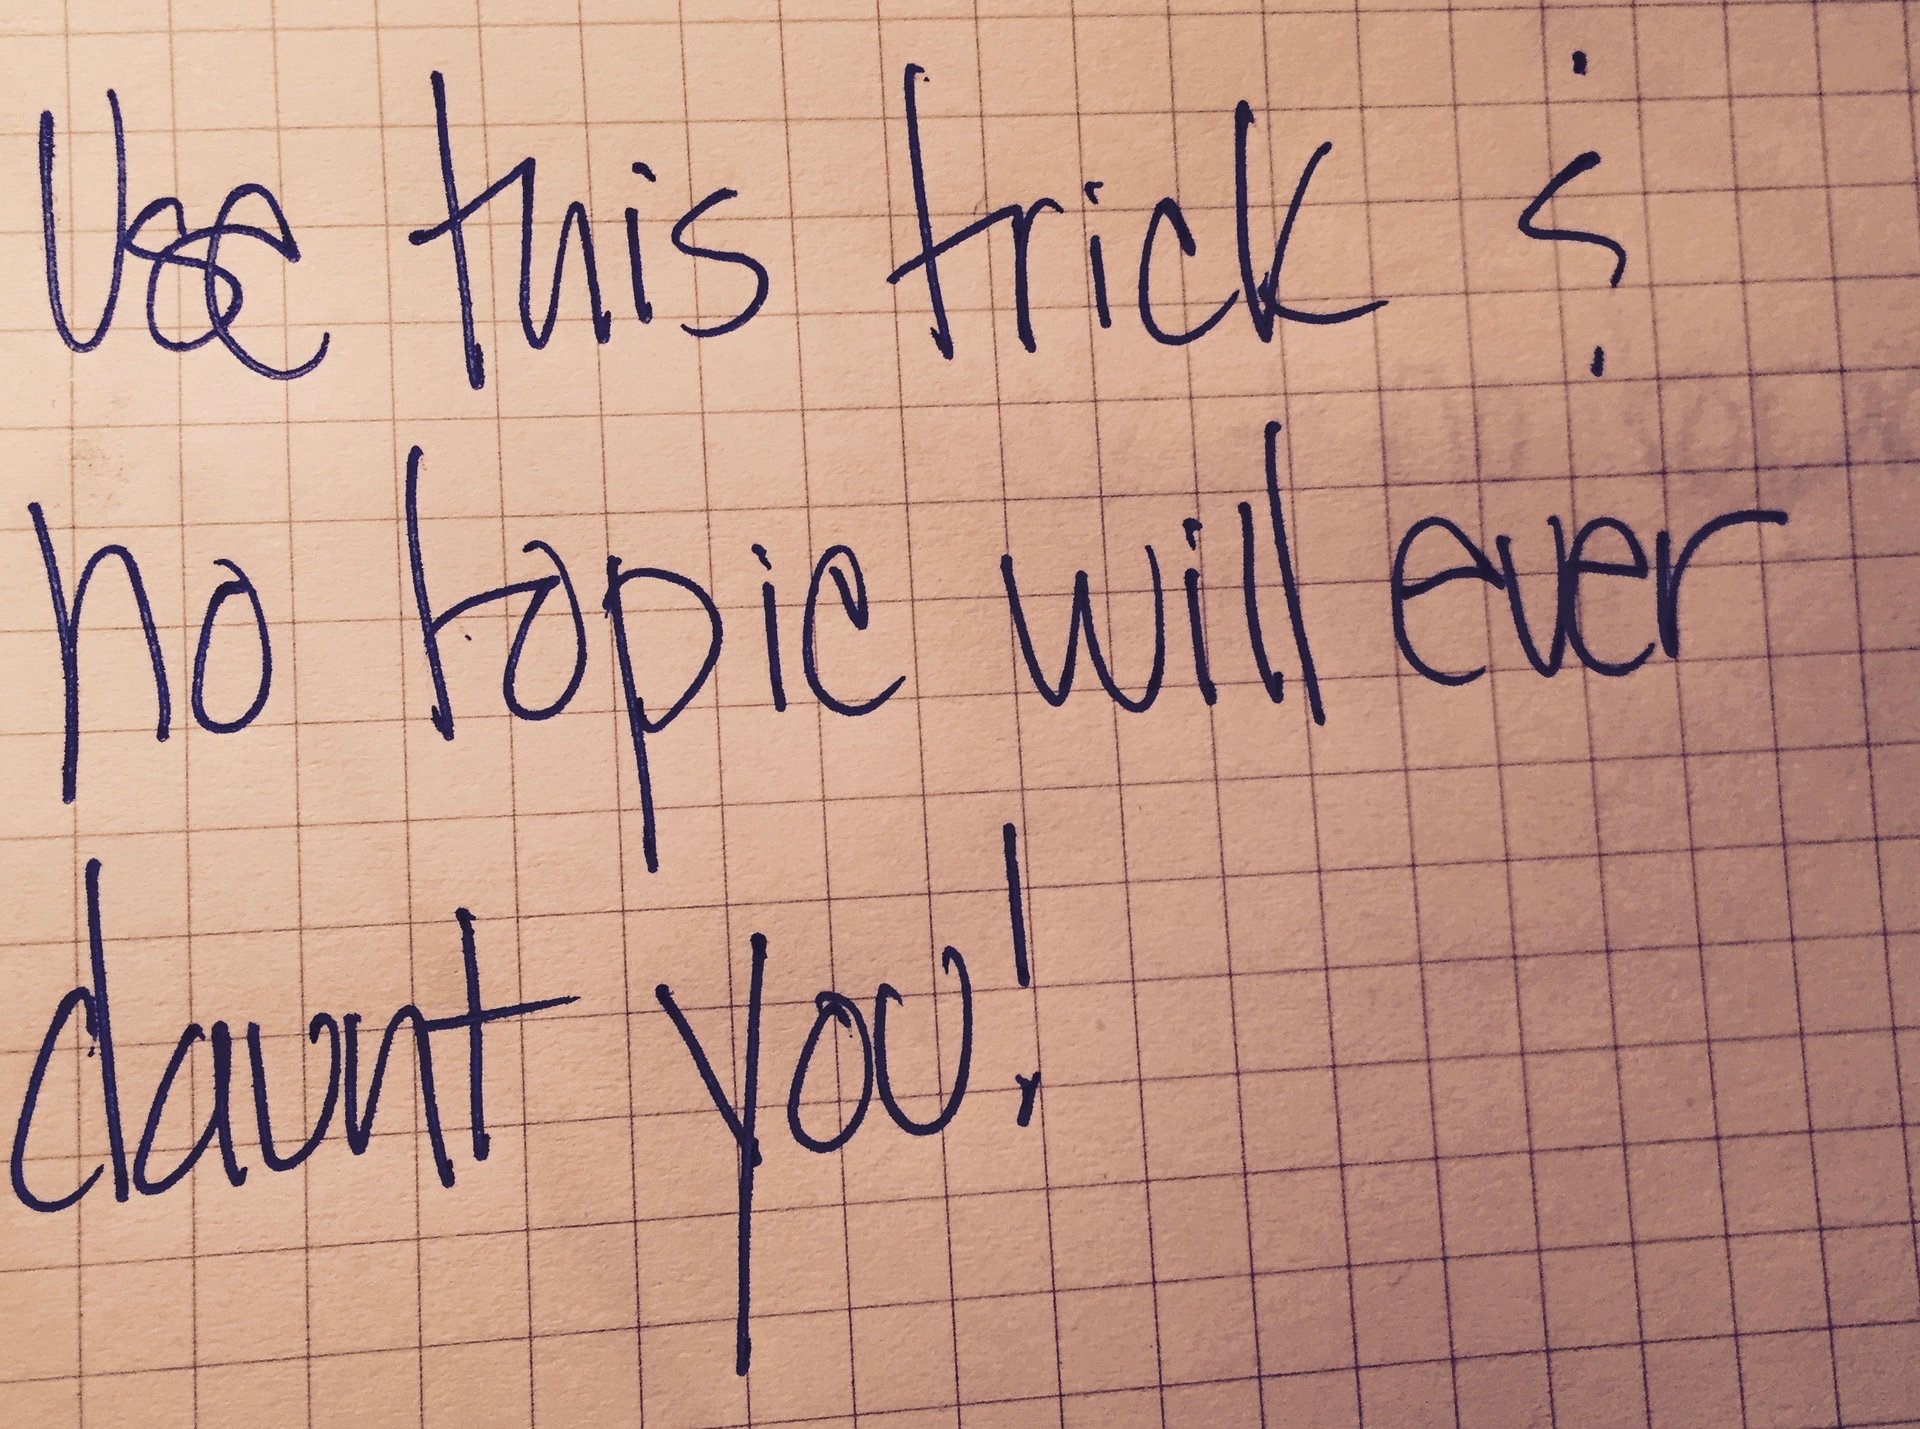 Use this trick &
no topic will ever
daunt you!